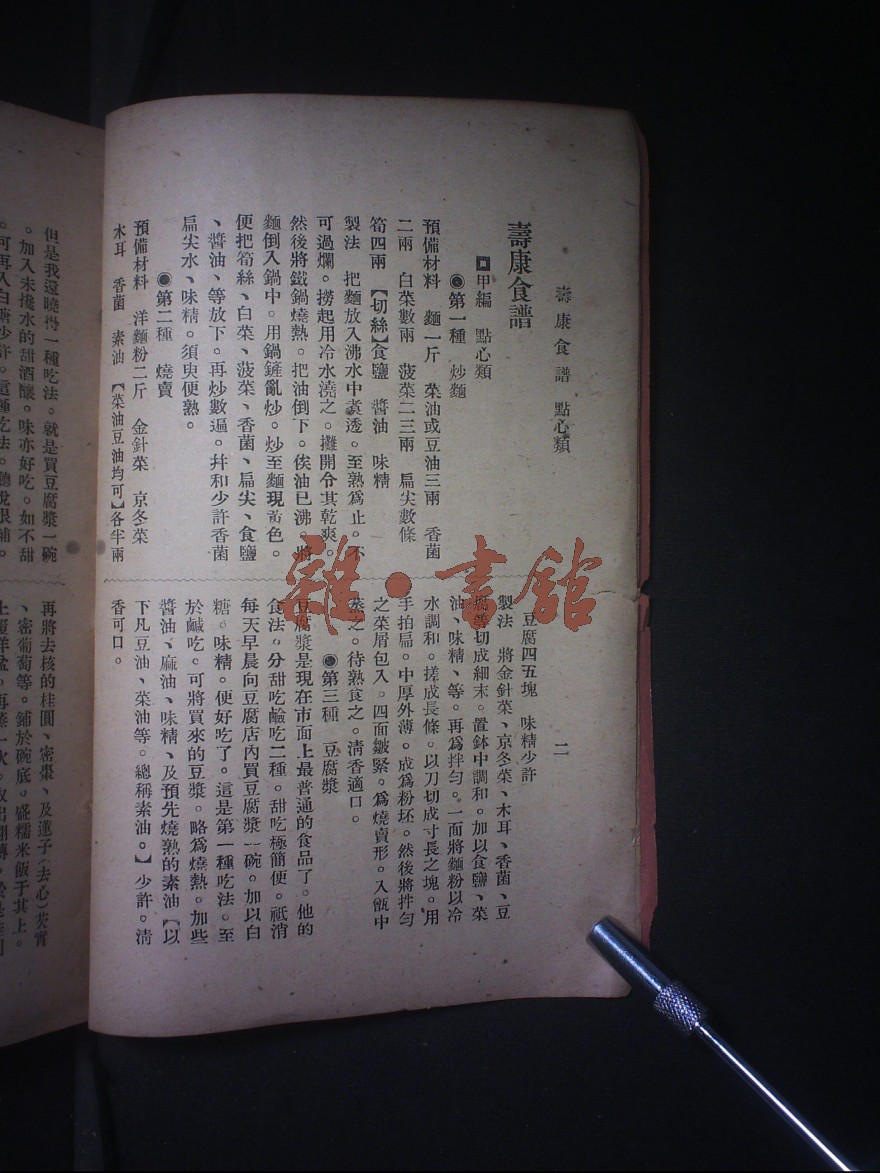 壽康食譜 點心類
二
壽康食譜
甲編 點心類
◉第一種 炒麵
預備材料 麵一斤 菜油或豆油三兩 香菌
二兩 白菜數兩 菠菜二三兩 扁尖數條
筍四兩 【切絲】食鹽 醬油 味精
製法 把麵放入沸水中煑透。至熟爲止。不
可過爛。撈起用冷水澆之。攤開令其乾爽。
然後將鐵鍋燒熱。把油倒下。俟油已沸、將
麵倒入鍋中。用鍋鏟亂炒。炒至麵現黃色。
便把筍絲、白菜、菠菜、香菌、扁尖、食鹽
、醬油、等放下。再炒數遍。幷和少許香菌
扁尖水、味精。須臾便熟。
◉第二種 燒賣
預備材料 洋麵粉二斤 金針菜 京冬菜
木耳 香菌 素油 【菜油豆油均可】各半兩
豆腐四五塊 味精少許
製法 將金針菜、京冬菜、木耳、香菌、豆
腐等切成細末。置鉢中調和。加以食鹽、菜
油、味精、等。再爲拌勻。一面將麵粉以冷
水調和。搓成長條。以刀切成寸長之塊。用
手拍扁。中厚外薄。成爲粉坯。然後將拌勻
之菜屑包入。四面皺緊。爲燒賣形。入甑中
蒸之。待熟食之。淸香適口。
◉第三種 豆腐漿
豆腐漿是現在市面上最普通的食品了。他的
食法。分甜吃鹹吃二種。甜吃極簡便。祇消
每天早晨向豆腐店內買豆腐漿一碗。加以白
糖。味精。便好吃了。這是第一種吃法。至
於鹹吃。可將買來的豆漿。略爲燒熱。加些
醬油、麻油、味精、及預先燒熟的素油【以
下凡豆油、菜油等。總稱素油。】少許。淸
香可口。
但是我還曉得一種吃法。就是買豆腐漿一碗
。加入未攙水的甜酒釀。味亦好吃。如不甜
。可再入白糖少許。這種吃法。聽說很補。
再將去核的桂圓、密棗、及蓮子(去心)芡實
、密葡萄等。鋪於碗底。盛糯米飯于其上。
雜·書館